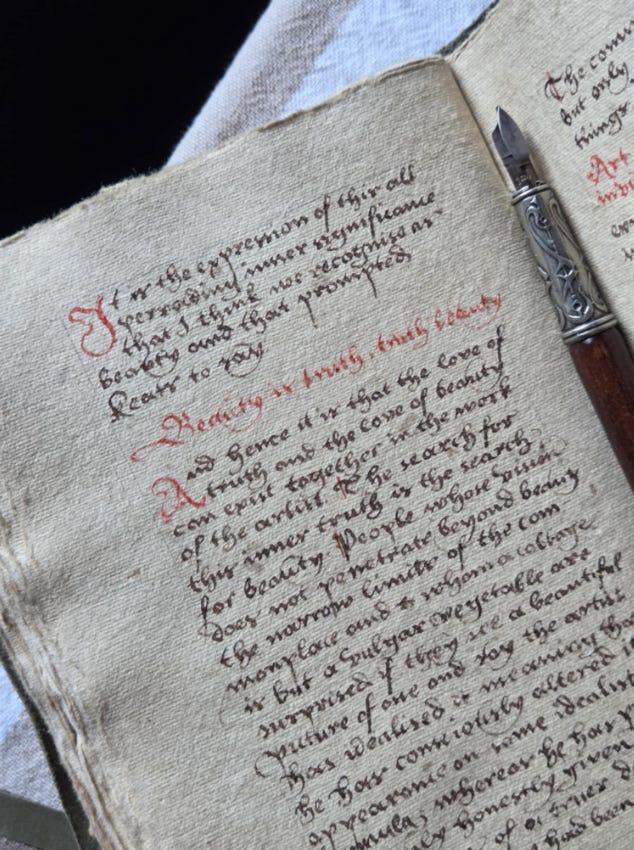 It is the expression of this all
pervading inner significance
that I think we recognise as
beauty and that prompted
Keats to say
Beauty is truth, truth beauty
And hence it is that the love of
truth and the love of beauty
can exist together in the work
of the artist The search for
this inner truth is the search
for beauty. People whose vision
does not penetrate beyond beauty
the narrow limits of the com
monplace and to whom a cabbage
is but a vulgar vegetable are
surprised if they see a beautiful
picture of one and say the artist
has idealised it meaning that
he has consciously altered
appearance on some idealistic
formula, whereas he has
honestly given
of a truer
had been
The com
but only
things
Art